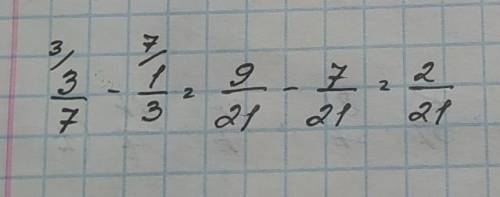 3/ 3/7 - 7/ 1/3 = 9/21 - 7/21 = 2/21